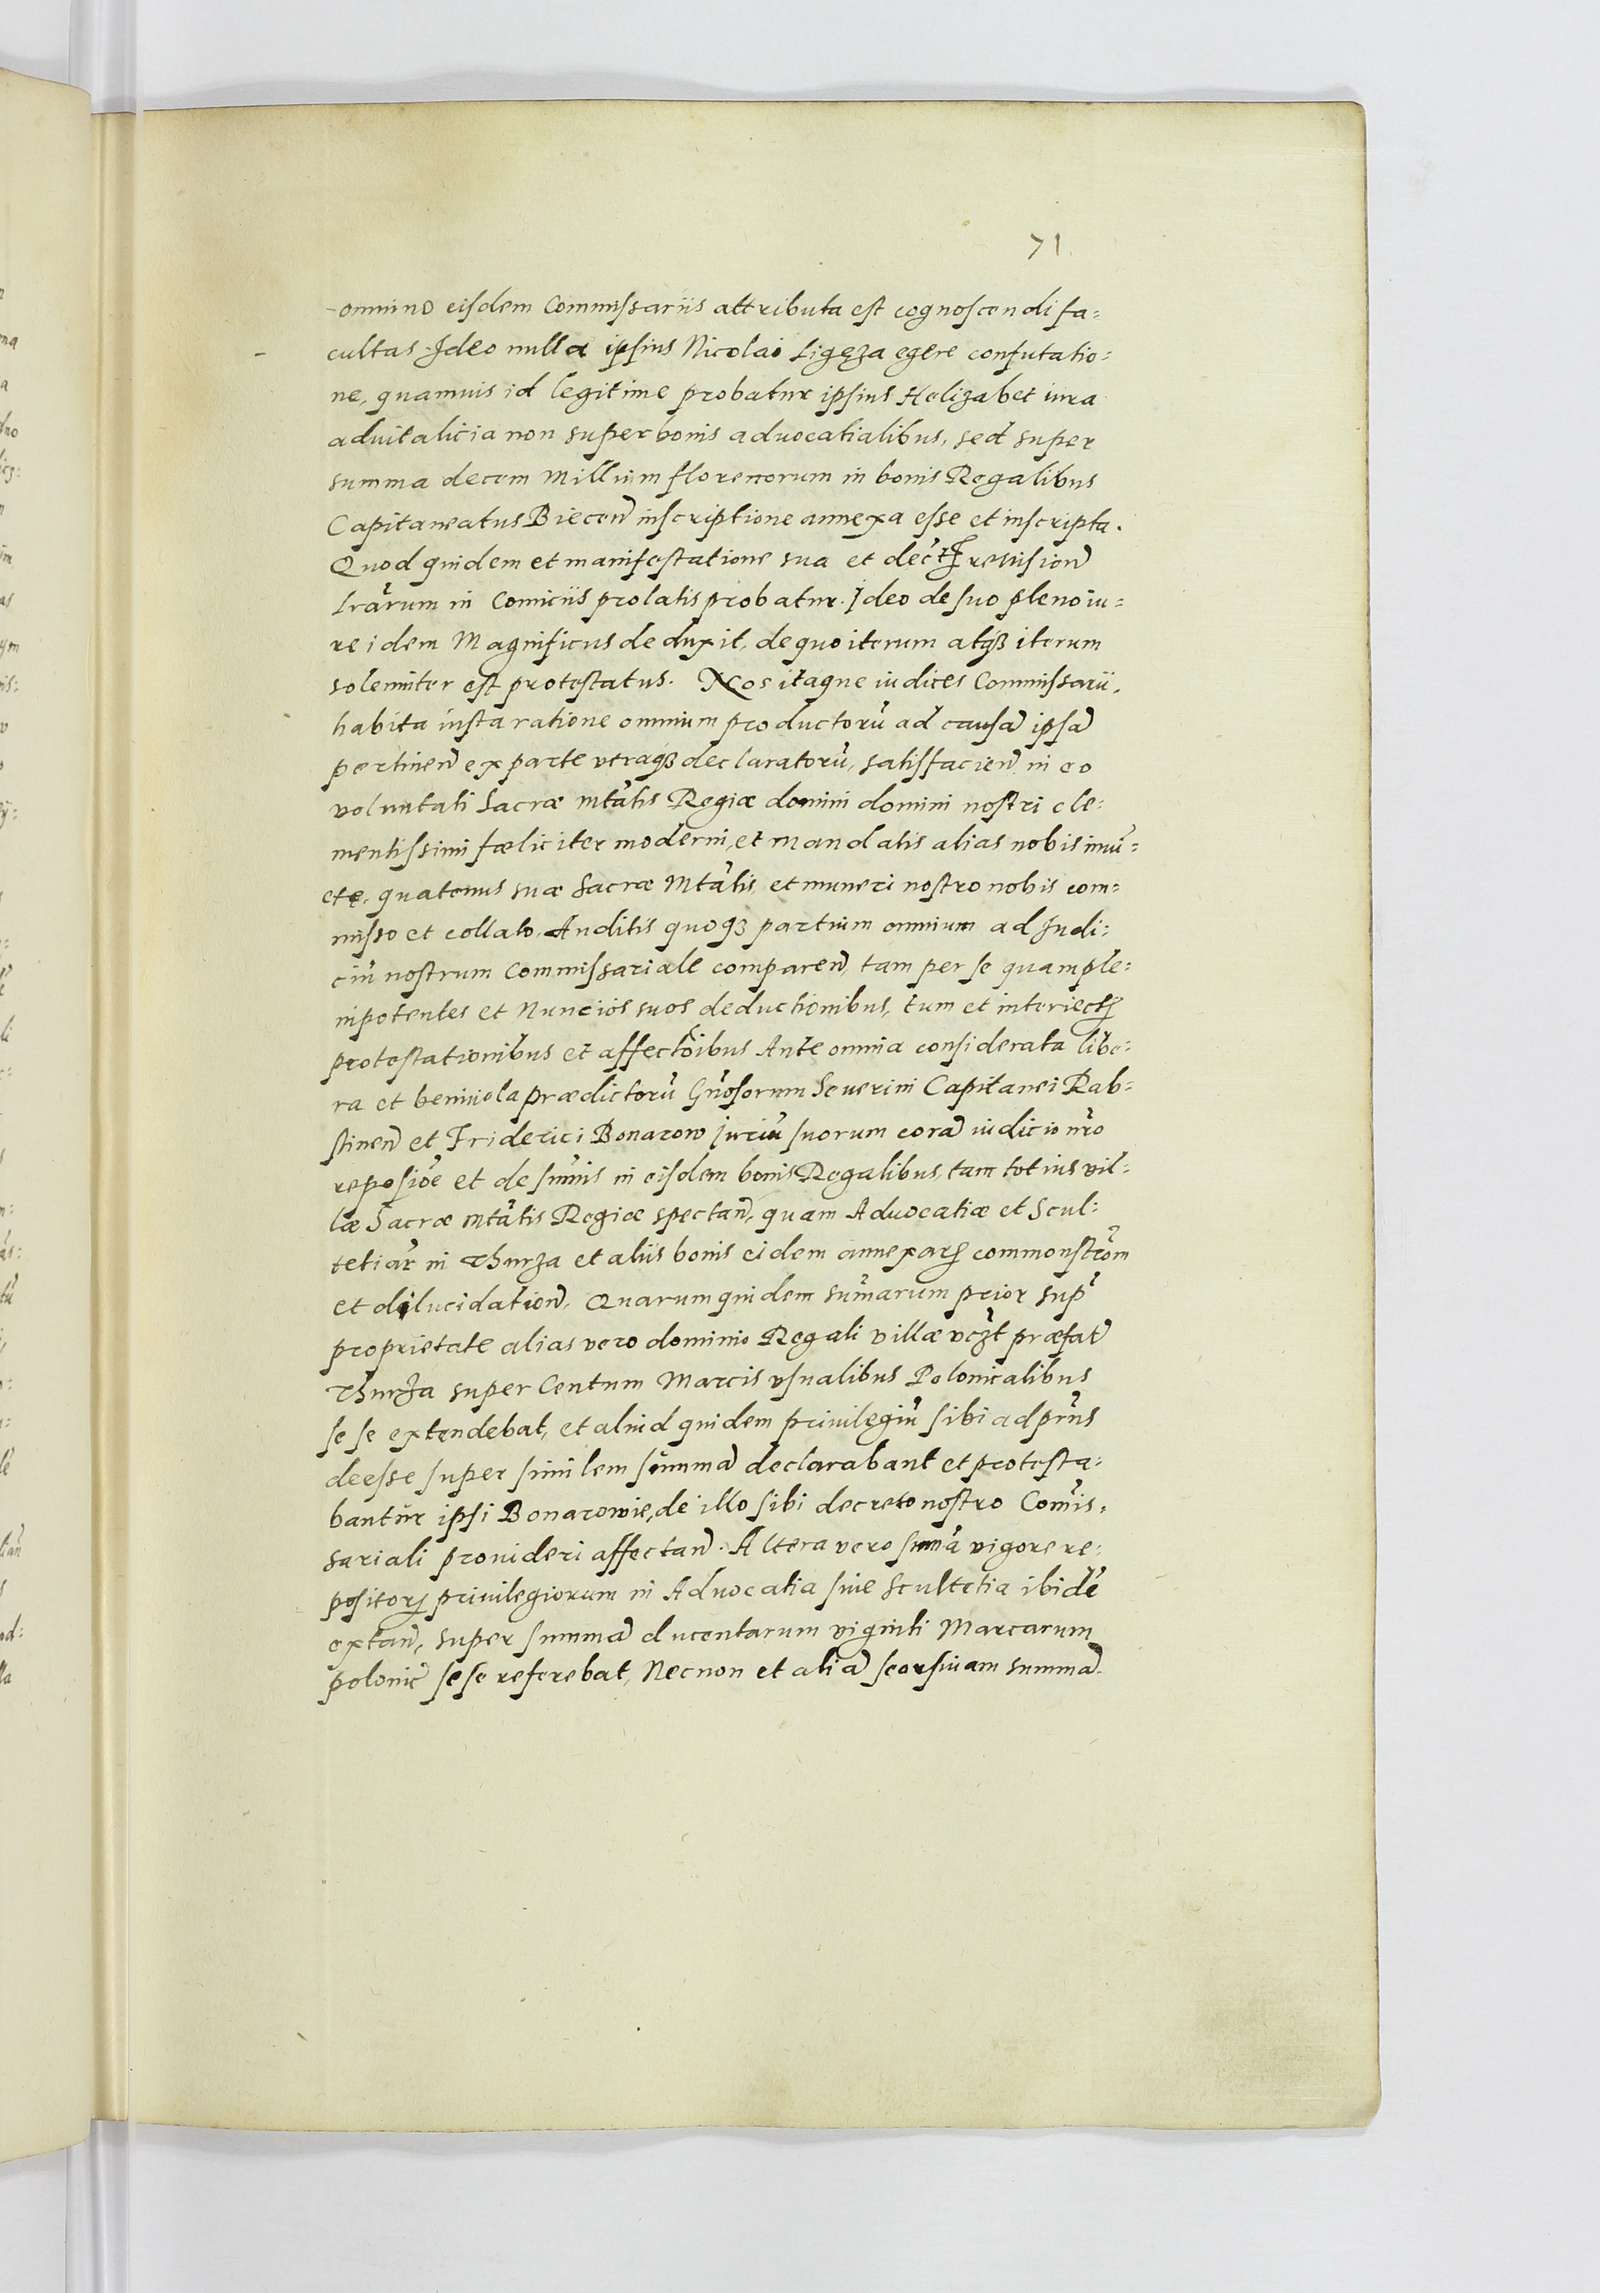 71
omnino eisdem Commissariis attributa est cognoscendi fa=
cultas. Ideo nulla ipsius Nicolai Ligęza egere confutatio=
ne, quamuis id legitime probatur ipsius Helizabet iura
aduitalicia non super bonis aduocatialibus, sed super
summa decem Millium florenorum in bonis Regalibus
Capitaneatus Biecen̄ inscriptione annexa esse et inscripta.
Quod quidem et manifestatione sua et revision̄
lrarum in Comiciis prolatis probatur. Ideo de suo pleno iu=
re idem Magnificus deduxit, de quo iterum atqȝ iterum
solemniter est protestatus. Nos itaque iudices Commissarii,
habita iusta ratione omnium productorū ad causam̄ ipsam̄
pertinen̄ ex parte vtraqȝ declaratorū, satisfacien̄ in eo
voluntati Sacræ Mtatis Regiæ domini domini nostri cle=
mentissimi fæliciter moderni, et mandatis alias nobis iniū=
ctę, quatenus suæ Sacræ Mtatis, et muneri nostro nobis com=
misso et collato. Auditis quoqȝ partium omnium ad Iudi=
ciū nostrum Commissariale comparen̄ tam per se quam ple=
nipotentes et Nuncios suos deductionibus, tum et interiectꝭ
protestationibus et affectōibus Ante omnia considerata libe=
ra et beniuola prædictorū Gn̄osorum Seuerini Capitanei Rab=
stinen̄ et Friderici Bonarow Iuriū suorum corā iudicio nr̄o
reposiōe et de sum̄is in eisdem bonis Regalibus, tam totius vil=
læ Sacræ Mtatis Regiæ spectan̄, quam Aduocatiæ et Scul=
tetiar̄ in Thurza et aliis bonis eidem annexarꝭ commonstrōm
et dilucidation̄. Quarum quidem sum̄arum prior sup̄
proprietate alias vero dominio Regali villæ vcȝt præfat̄
Thurza super Centum Marcis vsualibus Polonicalibus
se se extendebat, et aliud quidem priuilegiū sibi ad pr̄ns
deesse super similem summam̄ declarabant et protesta=
bantur ipsi Bonarowie, de illo sibi decreto nostro Com̄is=
sariali prouideri affectan̄. Altera vero sum̄a vigore re=
positorꝭ priuilegiorum in Aduocatia siue Scultetia ibidē
extan̄, super summam̄ ducentarum viginti Marcarum
polonic̄ sese referebat, Necnon et aliam̄ seorsiuam summam̄